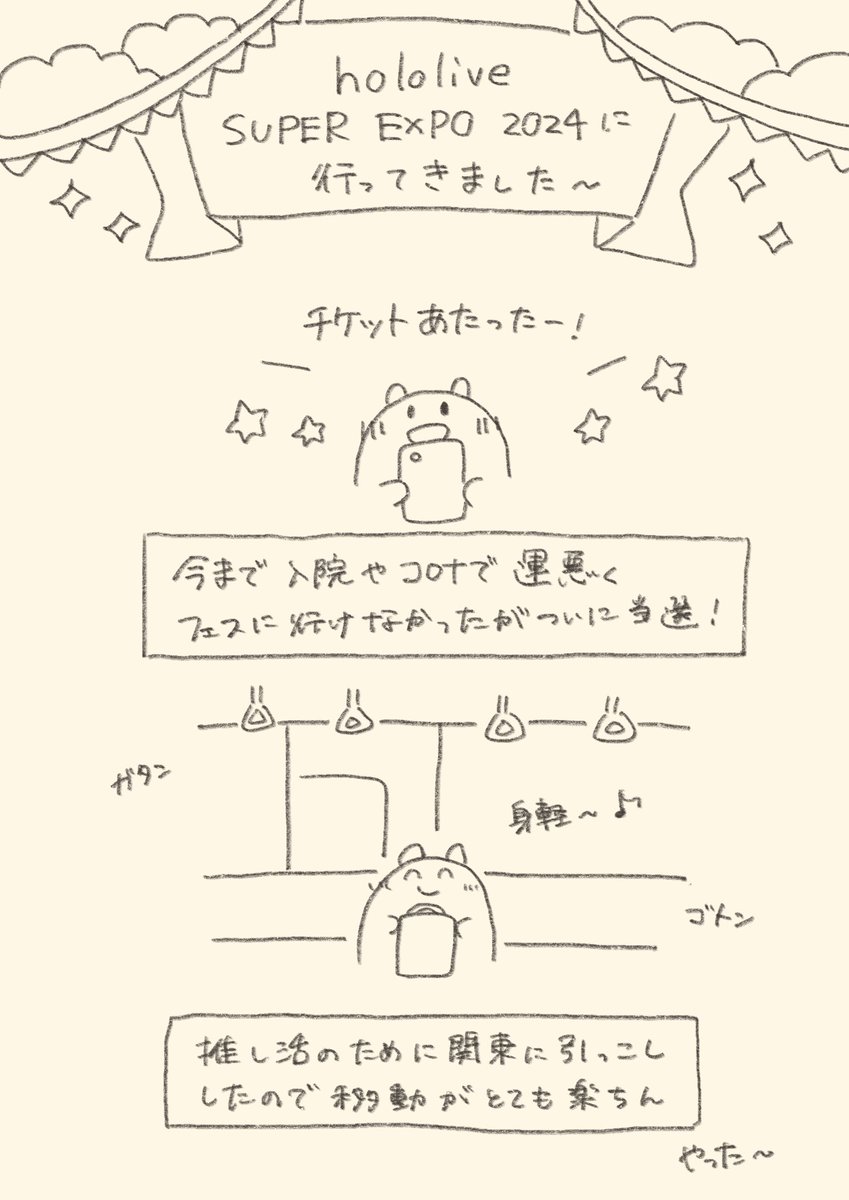 hololive
SUPER EXPO 2024に
行ってきました～
チケットあたったー！
今まで入院やコロナで運悪く
フェスに行けなかったがついに当選！
ガタン
身軽～♪
ゴトン
推し活のために関東に引っこし
したので移動がとても楽ちん
やった～